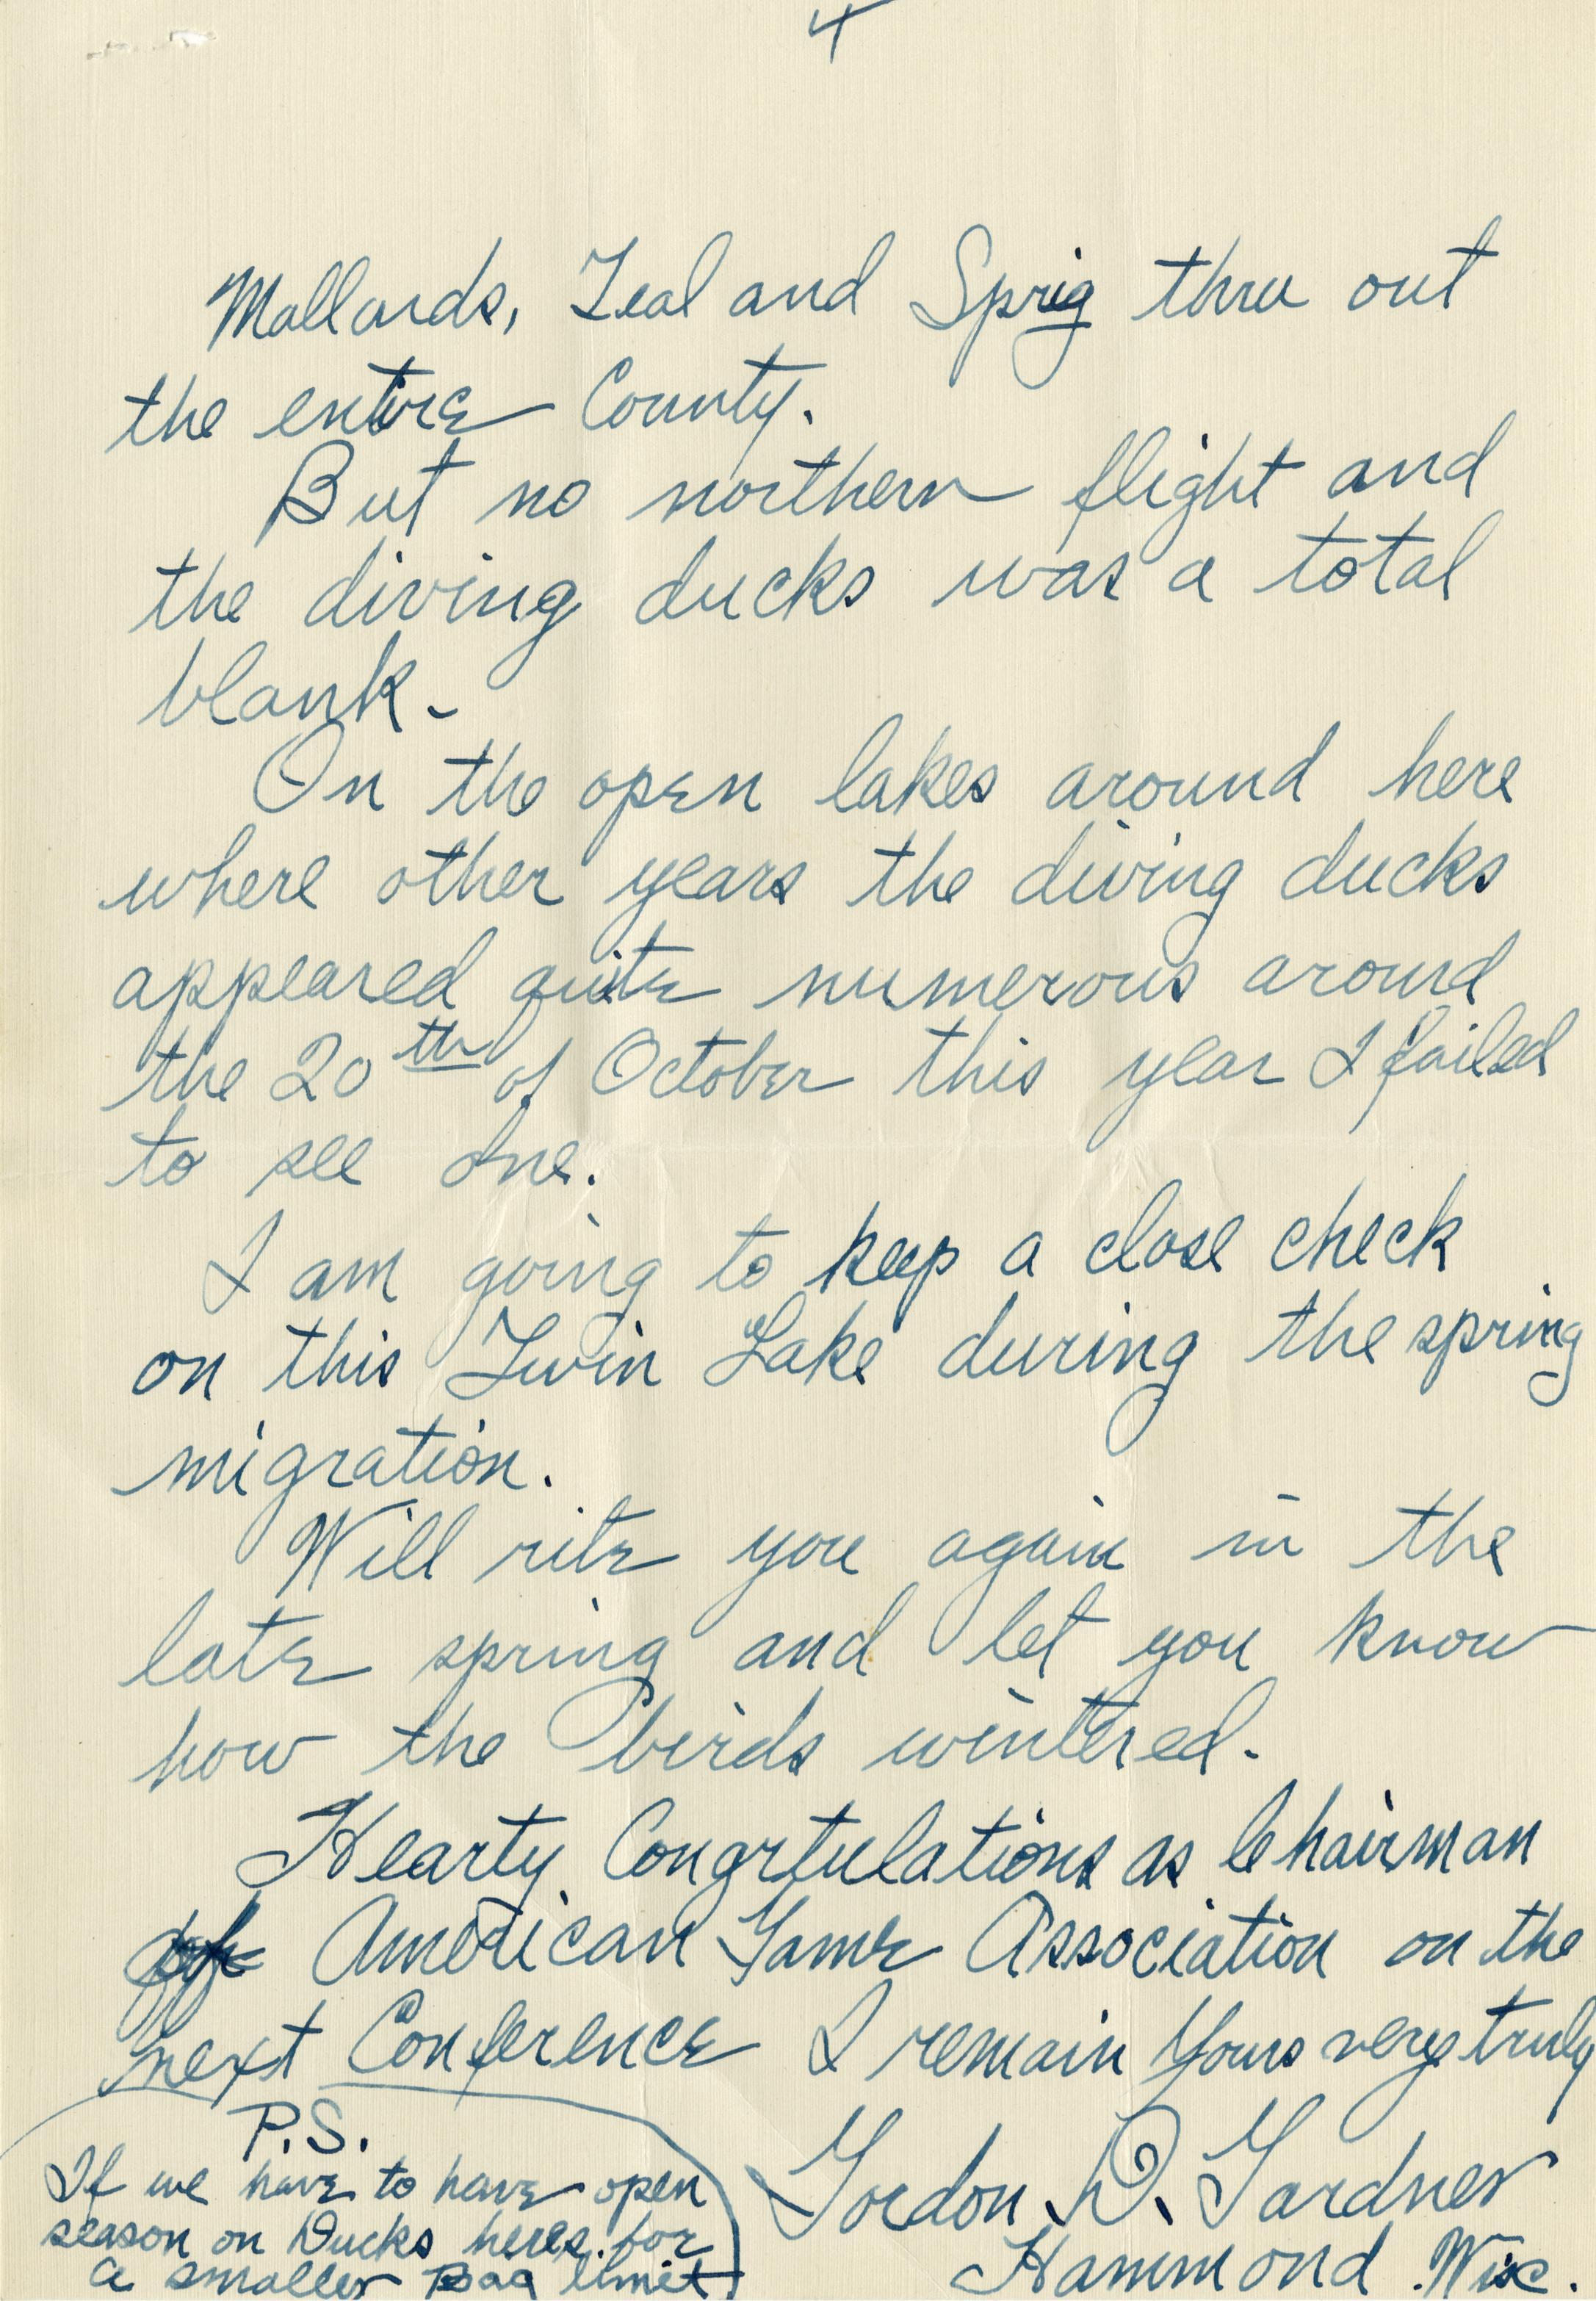 4
Mallards, Teal and Sprig thru out
the entire County.
But no northern flight and
the diving ducks was a total
blank.
On the open lakes around here
where other years the diving ducks
appeared quite numerous around
the 20th of October this year I failed
to see one.
I am going to keep a close check
on this Twin Lake during the spring
migration.
Will rite you again in the
late spring and let you know
how the birds wintered.
Hearty Congrtulations as Chairman
of American Game Association on the
next Conference I remain Yours very truly
Gordon D. Gardner
Hammond Wisc.
P.S.
If we have to have open
season on Ducks heres for
a smaller Bag limit